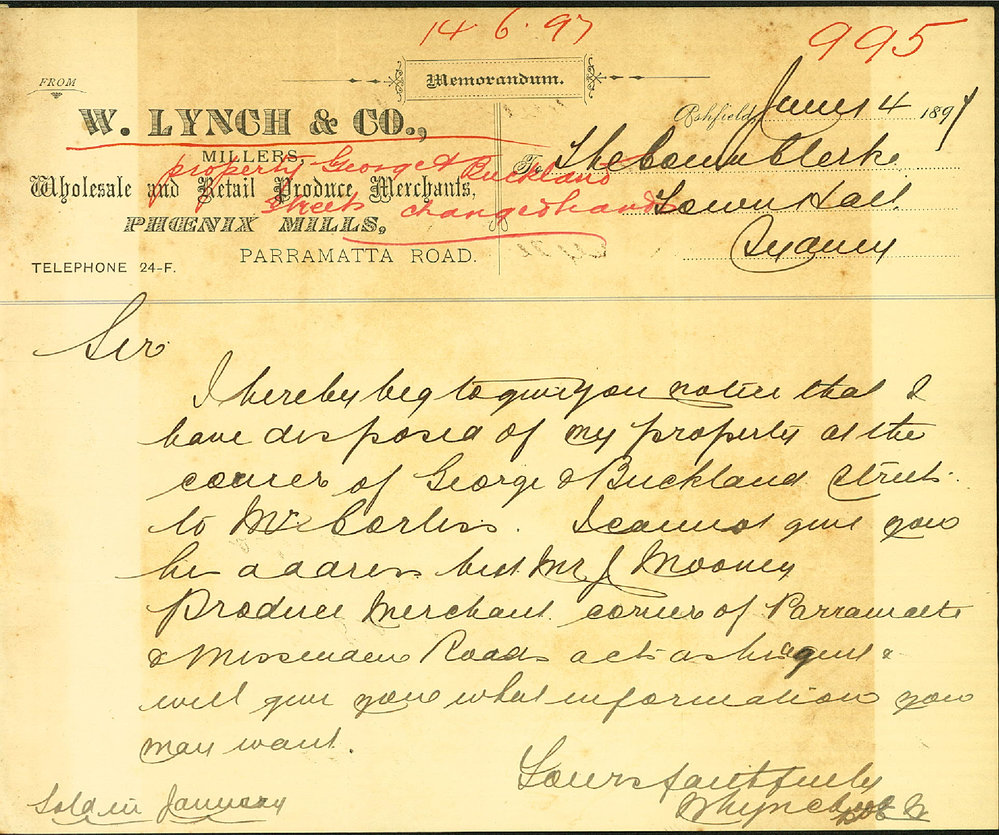 14.6.97
995
FROM
Memorandum.
W. LYNCH & CO.,
MILLERS,
Wholesale and Retail Produce Merchants,
PHŒNIX MILLS,
PARRAMATTA ROAD.
TELEPHONE 24-F.
property George & Buckland
Streets changed hands
Ashfield, June 4 1897
To The Town Clerk
Town Hall
Sydney
Sir
I hereby beg to give you notice that I
have disposed of my property at the
corner of George & Buckland Streets
to Mr Corliss. I cannot give you
his address but Mr J Mooney
Produce Merchant corner of Parramatta
& Missenden Roads acts as his agent &
will give you what information you
may want.
Yours faithfully
W Lynch & Co
Sold in January